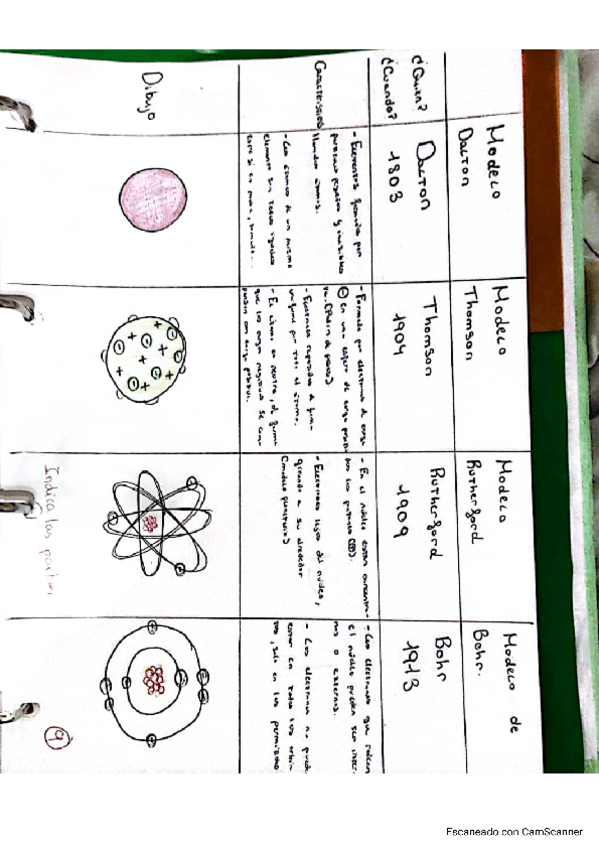 Modelo
Dalton
Modelo
Thomson
Modelo
Rutherford
Modelo de
Bohr.
¿Quien?
¿Cuando?
Dalton
1803
Thomson
1904
Rutherford
1909
Bohr
1913
Caracteristicas
- Elementos formados por
particulas pequeñas y invisibles
llamadas átomos.
- Los átomos de un mismo
elemento son todos iguales
entre si en masa, tamaño...
- Formado por electrones de carga
⊖ en una esfera de carga positi-
va. (Pudin de pasas)
- Electrones repartidos de forma
uniforme por todo el átomo.
- El átomo es neutro, de forma
que las cargas negativas se com-
pensan con carga positiva.
- En el núcleo estan concentra-
dos los protones (⊕).
- Electrones lejos del núcleo,
girando a su alrededor
(modelo planetario)
- Los electrones que rodean
el núcleo pueden ser inter-
nos o externos.
- Los electrones no pueden
estar en todas las orbi-
tas, solo en las permitidas
Dibujo
+ + + + + +
Indica las partes
9
Escaneado con CamScanner